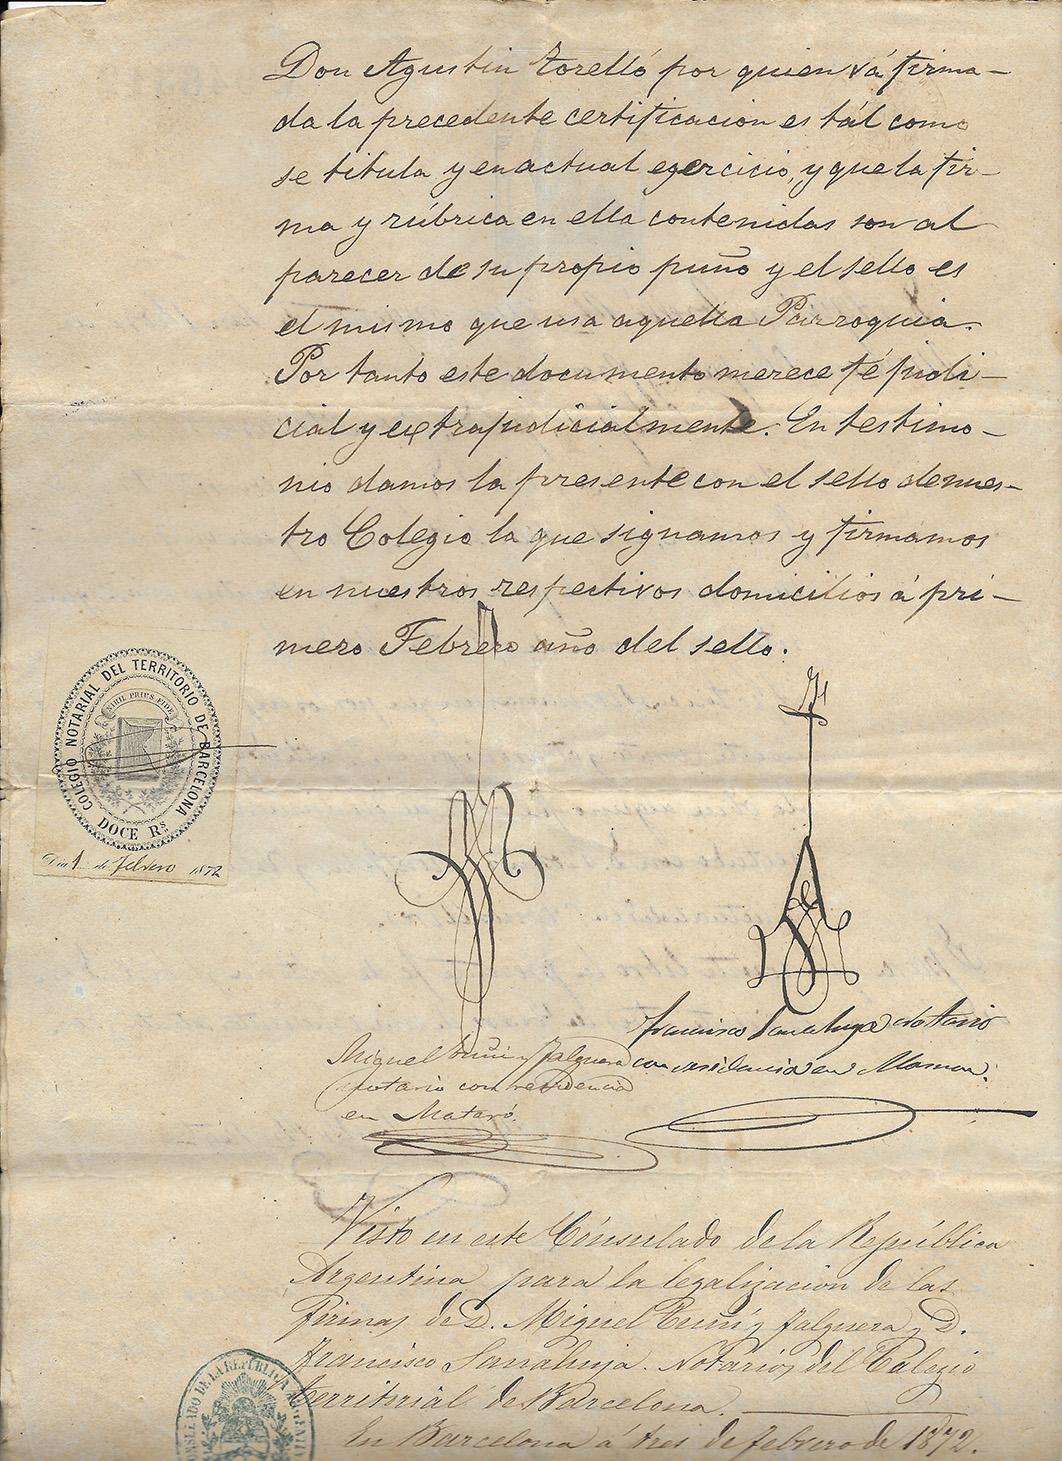 Don Agustin Torelló por quien vá firma-
da la precedente certificacion es tál como
se titula y en actual egercicio, y que la fir-
ma y rúbrica en ella contenidas son al
parecer de su propio puño y el sello es
el mismo que usa aquella Parroquia.
Por tanto este documento merece fé judi-
cial y extrajudicialmente. En testimo-
nio damos la presente con el sello de nues-
tro Colegio la que signamos y firmamos
en nuestros respectivos domicilios á pri-
mero Febrero año del sello.
COLEGIO NOTARIAL DEL TERRITORIO DE BARCELONA
NIHIL PRIUS FIDE
DOCE Rs
Dia 1 de febrero 1872
Francisco Sanahuja Notario
con residencia en
Miguel y Falguera
notario con residencia
en Mataró.
Visto en este Cónsulado de la República
Argentina para la legalizacion de las
firmas de D. Miguel y Falguera y D.
Francisco Sanahuja. Notarios del Colegio
territorial de Barcelona.
En Barcelona á tres de febrero de 1872.
CONSULADO DE LA REPUBLICA ARGENTINA